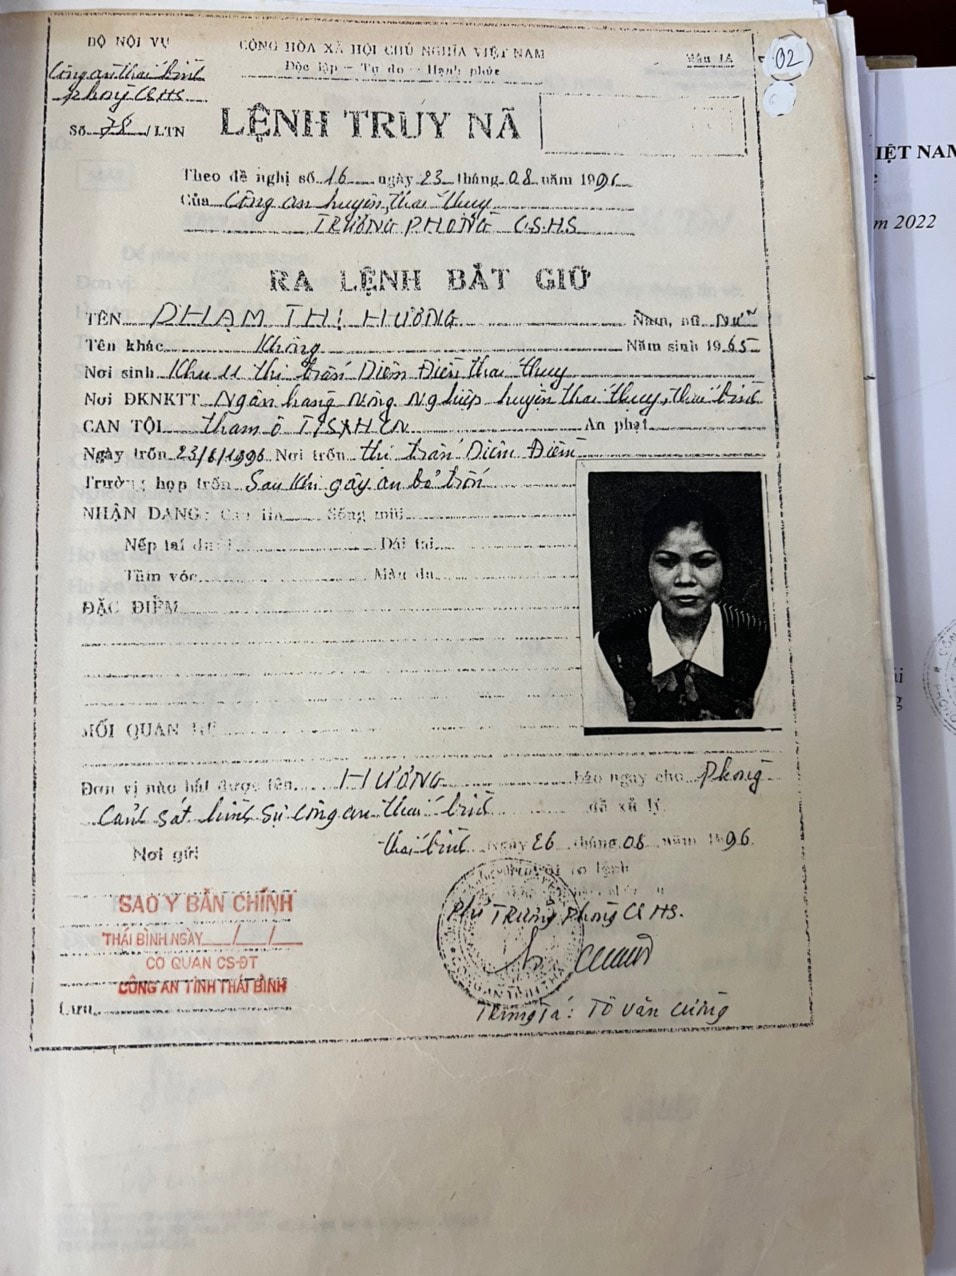 BỘ NỘI VỤ
CỘNG HÒA XÃ HỘI CHỦ NGHĨA VIỆT NAM
Độc lập - Tự do - Hạnh phúc
Công an thái bình
phòng CSHS
Số 78 /LTN
02
LỆNH TRUY NÃ
Theo đề nghị số 16 ngày 23 tháng 08 năm 1996
Của Công an huyện thái thụy
TRƯỞNG PHÒNG C.S.H.S
RA LỆNH BẮT GIỮ
TÊN PHẠM THỊ HƯƠNG Nam, nữ Nữ
Tên khác Không Năm sinh 1965
Nơi sinh Khu thị trấn Diêm Điền thái thụy
Nơi ĐKNKTT Ngân hàng Nông Nghiệp huyện thái thụy, thái bình
CAN TỘI tham ô TSXHCN Án phạt
Ngày trốn 23/6/1996 Nơi trốn thị trấn Diêm Điền
Trường hợp trốn Sau khi gây án bỏ trốn
NHẬN DẠNG: Cao Sống mũi
Nếp tai Dái tai
Tầm vóc Màu da
ĐẶC ĐIỂM
MỐI QUAN HỆ
Đơn vị nào bắt được tên HƯƠNG báo ngay cho phòng
Cảnh sát hình sự công an thái bình để xử lý.
thái bình Ngày 26 tháng 08 năm 1996.
Nơi gửi
Phó Trưởng phòng CSHS.
SAO Y BẢN CHÍNH
THÁI BÌNH NGÀY / /
CƠ QUAN CS-ĐT
CÔNG AN TỈNH THÁI BÌNH
Lưu
Trung Tá: Tô Văn Cường
IỆT NAM
m 2022